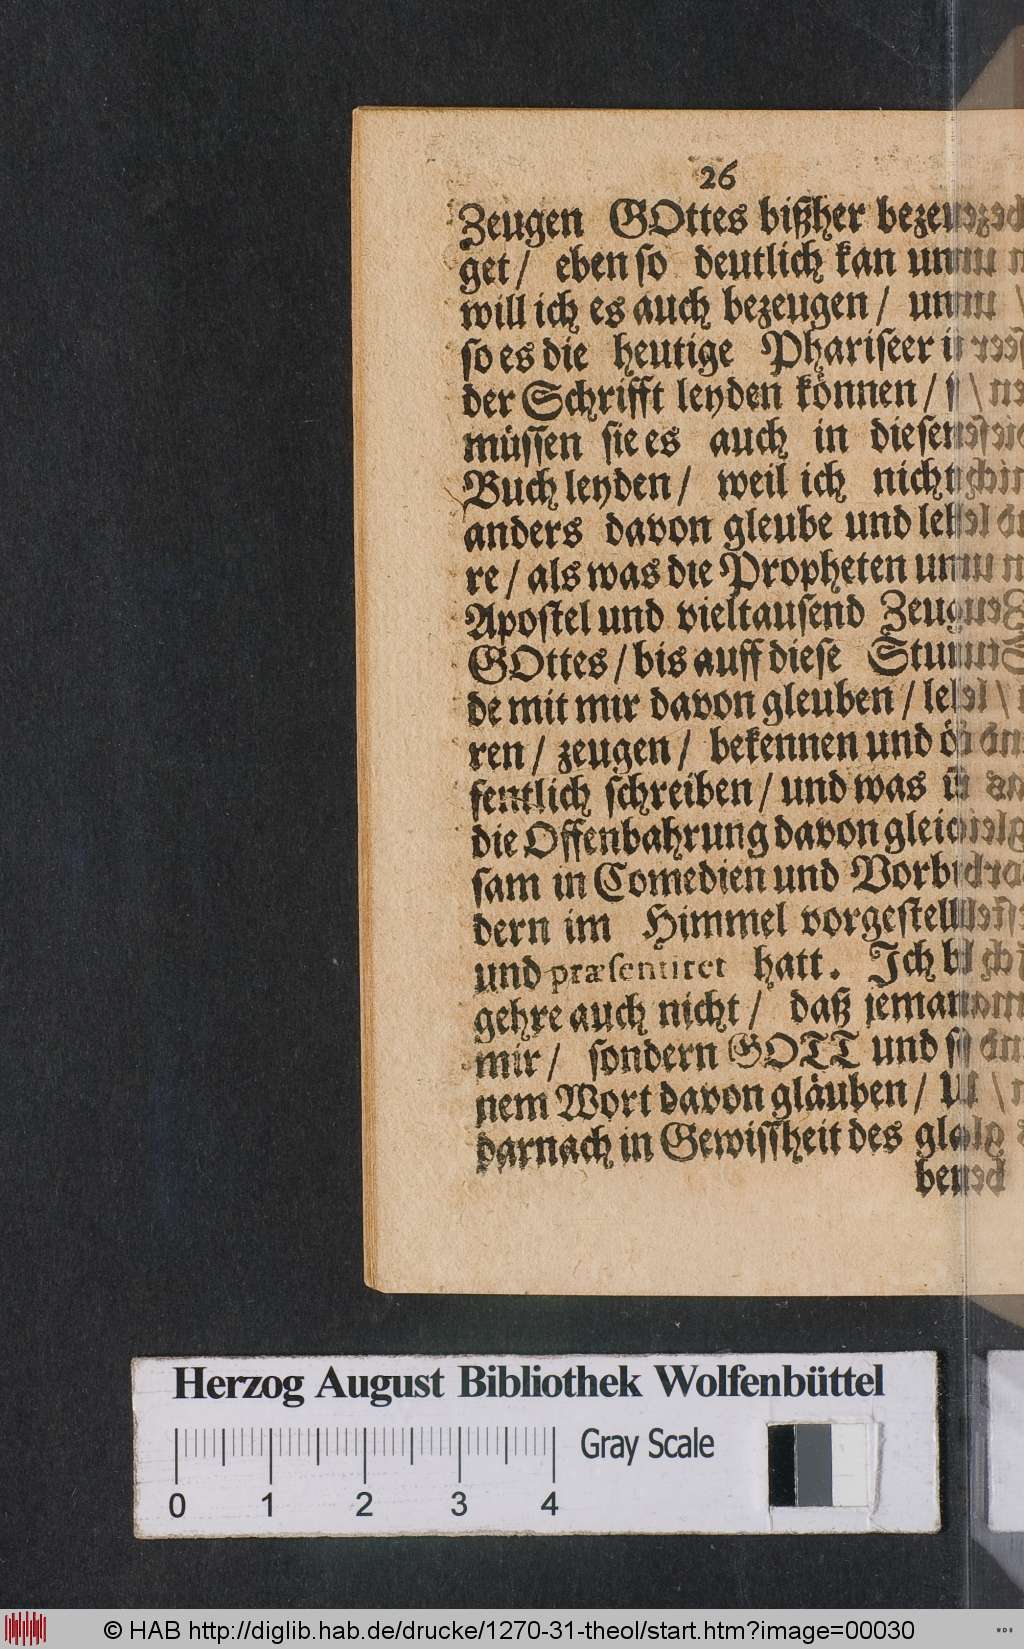 26
Zeugen GOttes bißher bezeu-
get / eben so deutlich kan un
will ich es auch bezeugen / un
so es die heutige Phariseer in
der Schrifft leyden können / s
müssen sie es auch in diesen
Buch leyden / weil ich nicht
anders davon gleube und leh-
re / als was die Propheten un
Apostel und vieltausend Zeugen
GOttes / bis auff diese Stun-
de mit mir davon gleuben / leh-
ren / zeugen / bekennen und öf-
fentlich schreiben / und was
die Offenbahrung davon gleich-
sam in Comedien und Vorbil-
dern im Himmel vorgestellt
und præsentiret hatt. Ich be-
gehre auch nicht / daß jemand
mir / sondern GOTT und sei-
nem Wort davon gläuben /
darnach in Gewissheit des glau-
ben
Herzog August Bibliothek Wolfenbüttel
0 1 2 3 4 Gray Scale
© HAB http://diglib.hab.de/drucke/1270-31-theol/start.htm?image=00030